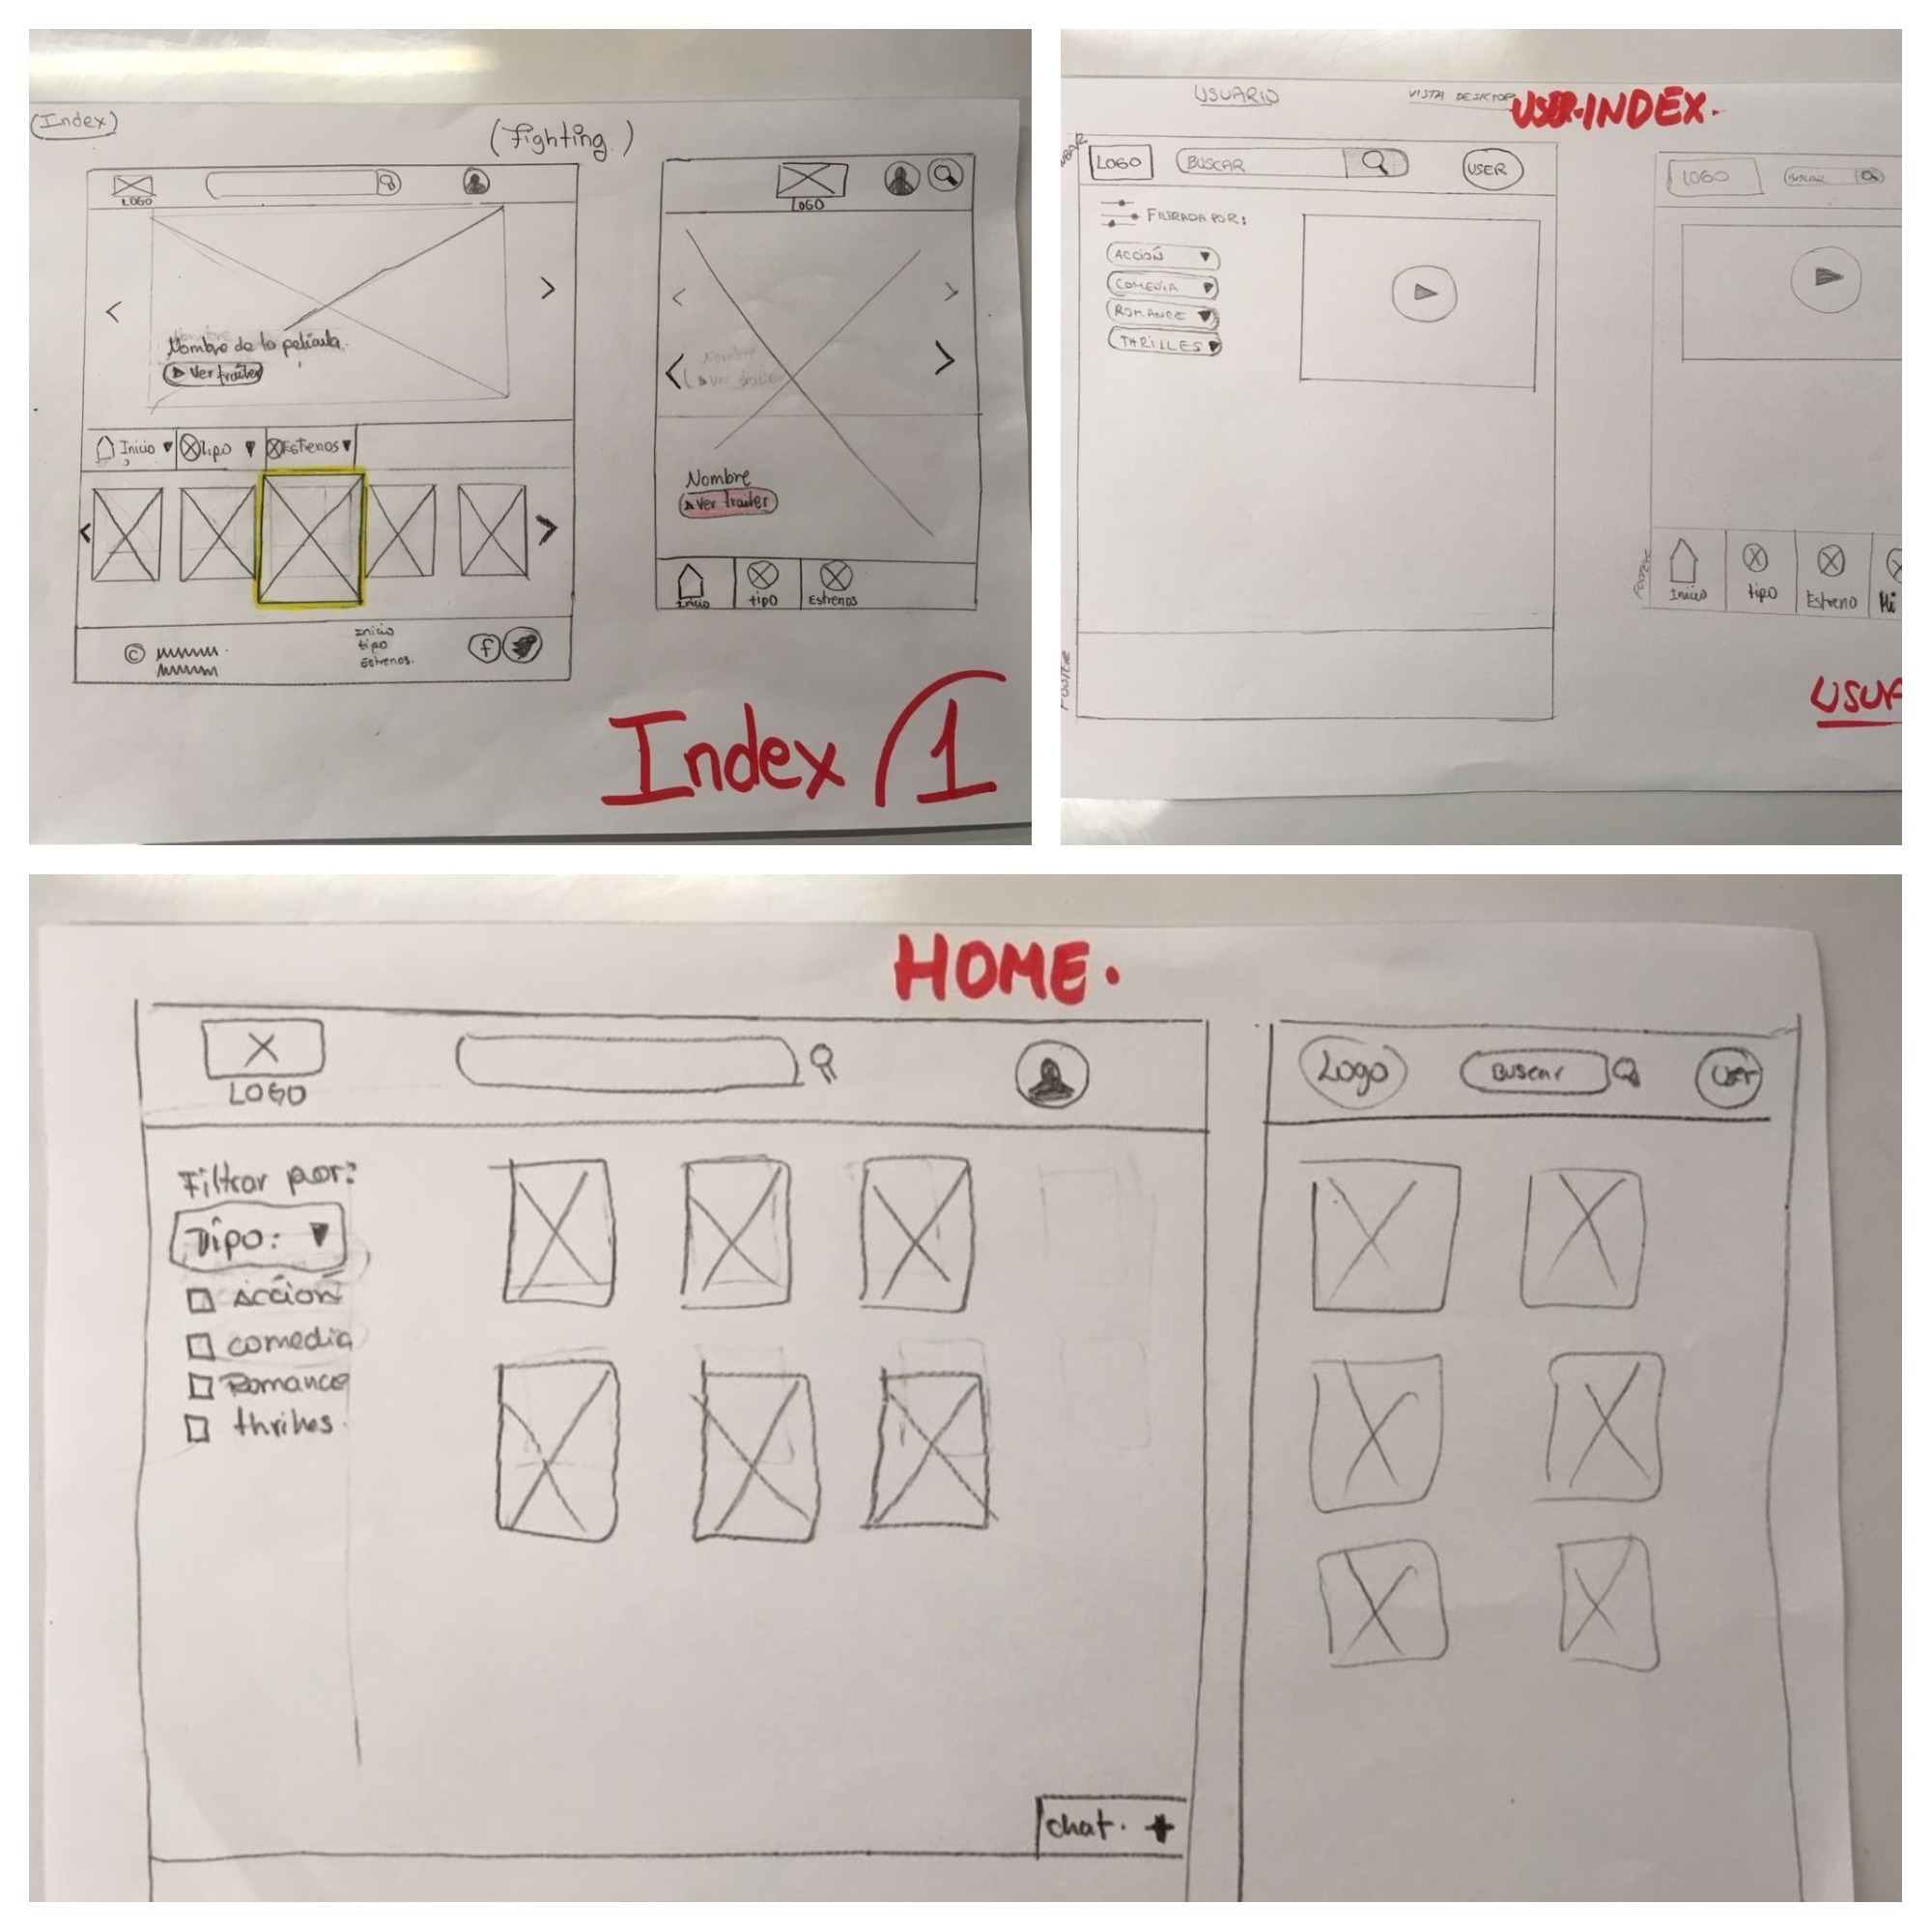 (Index)
(Fighting)
LOGO
Nombre de la película.
Ver trailer
Inicio
tipo
Estrenos
©
Inicio
tipo
Estrenos.
f
LOGO
Nombre
Ver trailer
Nombre
Ver trailer
Inicio
tipo
Estrenos
Index 1
USUARIO
VISTA DESKTOP
USER-INDEX.
LOGO
BUSCAR
USER
FILTRADA POR:
ACCIÓN
COMEDIA
ROMANCE
THRILLES
FOOTER
LOGO
BUSCAR
FOOTER
Inicio
tipo
Estreno
Mi
USUA
HOME.
LOGO
Filtrar por:
Tipo:
Acción
comedia
Romance
chat. +
Logo
Buscar
User